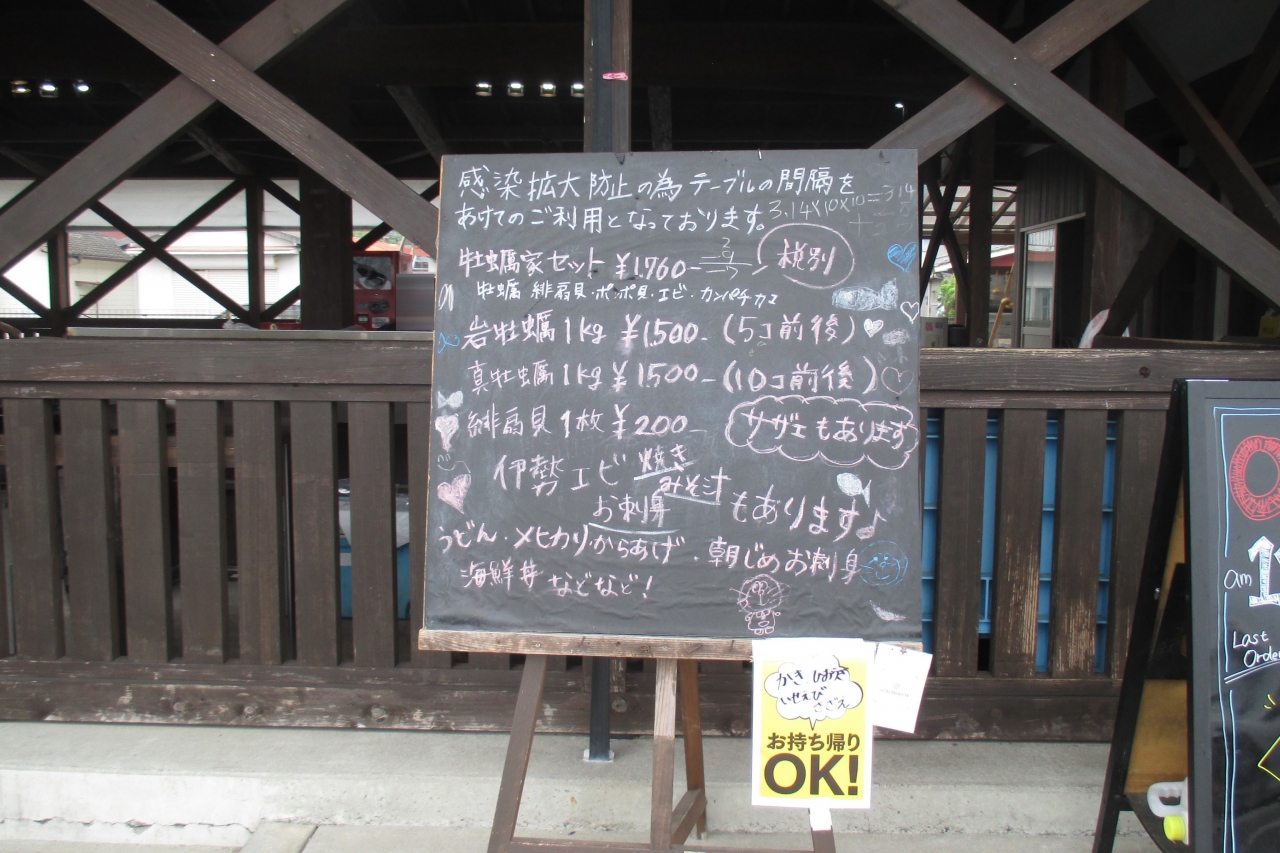 感染拡大防止の為テーブルの間隔を
あけてのご利用となっております。
3.14×10×10=314
牡蠣家セット ¥1,760- 税別
牡蠣・緋扇貝・ポポ貝・エビ・カンパチカマ
岩牡蠣1kg ¥1,500-(5コ前後)
真牡蠣1kg ¥1500-(10コ前後)
緋扇貝1枚¥200-
サザエもあります
伊勢エビ 焼き
みそ汁
お刺身
もあります♪
うどん・メヒカリからあげ・朝じめお刺身
海鮮丼などなど!
かき ひおうぎ
いせえび
さざえ
お持ち帰り
OK!
am
Last
Order